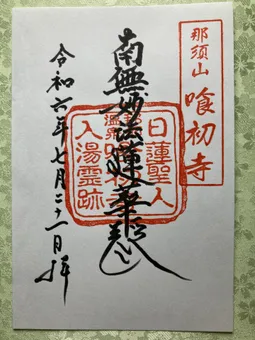 那須山
喰初寺
南無妙法蓮華経
日蓮聖人
入湯霊跡
令和六年七月二十一日拝